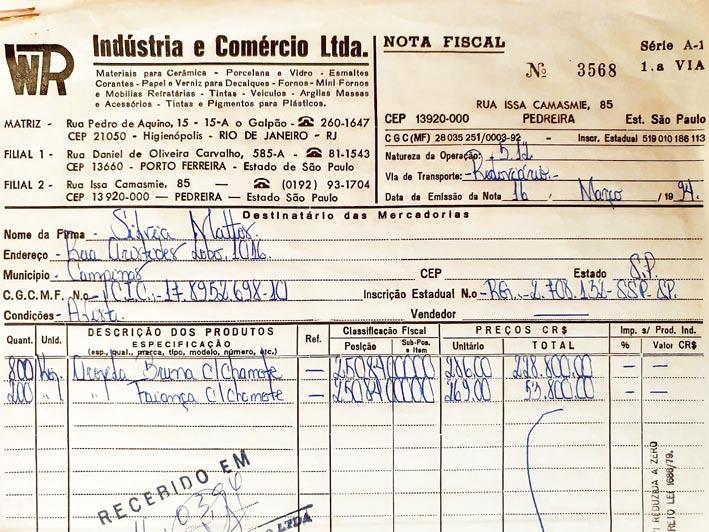 WTR Indústria e Comércio Ltda.
Materiais para Cerâmica - Porcelana e Vidro - Esmaltes
Corantes - Papel e Verniz para Decalques - Fornos - Mini-Fornos
e Mobilias Refratárias - Tintas - Veiculos - Argilas Massas
e Acessórios - Tintas e Pigmentos para Plásticos.
MATRIZ - Rua Pedro de Aquino, 15 - 15-A o Galpão - ☎ 260-1647
CEP 21050 - Higienópolis - RIO DE JANEIRO - RJ
FILIAL 1 - Rua Daniel de Oliveira Carvalho, 585-A - ☎ 81-1543
CEP 13660 - PORTO FERREIRA - Estado de São Paulo
FILIAL 2 - Rua Issa Camasmie, 85 — ☎ (0192) 93-1704
CEP 13920-000 — PEDREIRA — Estado São Paulo
NOTA FISCAL
Série A-1
Nº 3568 1.a VIA
RUA ISSA CAMASMIE, 85
CEP 13920-000 PEDREIRA Est. São Paulo
CGC(MF) 28 035 251/0003-92 - Inscr. Estadual 519 010 186 113
Natureza da Operação: 5.12
Via de Transporte: Rodoviário
Data da Emissão da Nota 16 / Março / 1994
Destinatário das Mercadorias
Nome da Firma - Silvia Mattos
Endereço - Rua Aristides Lobo, 1016
Municipio - Campinas CEP Estado S.P.
C.G.C.M.F. N.o - CIC.: 17.8952.698-10 Inscrição Estadual N.o - RG.: 2.708.132-SSP-SP.
Condições - Avista Vendedor
Quant. Unid. DESCRIÇÃO DOS PRODUTOS Ref. Classificação Fiscal PREÇOS CR$ Imp. s/ Prod. Ind.
ESPECIFICAÇÃO
(esp., qual., marca, tipo, modelo, número, etc.) Posição Sub-Pos. e Item Unitário TOTAL % Valor CR$
800 Kgs. Bruna C/Chamote — 250840000 286.00 228.800.00 — —
200 " Faiança C/Chamote — 250840000 269.00 53.800.00 — —
RECEBIDO EM
LTDA
REDUZIDA A ZERO
DECRETO LEI 1686/79.